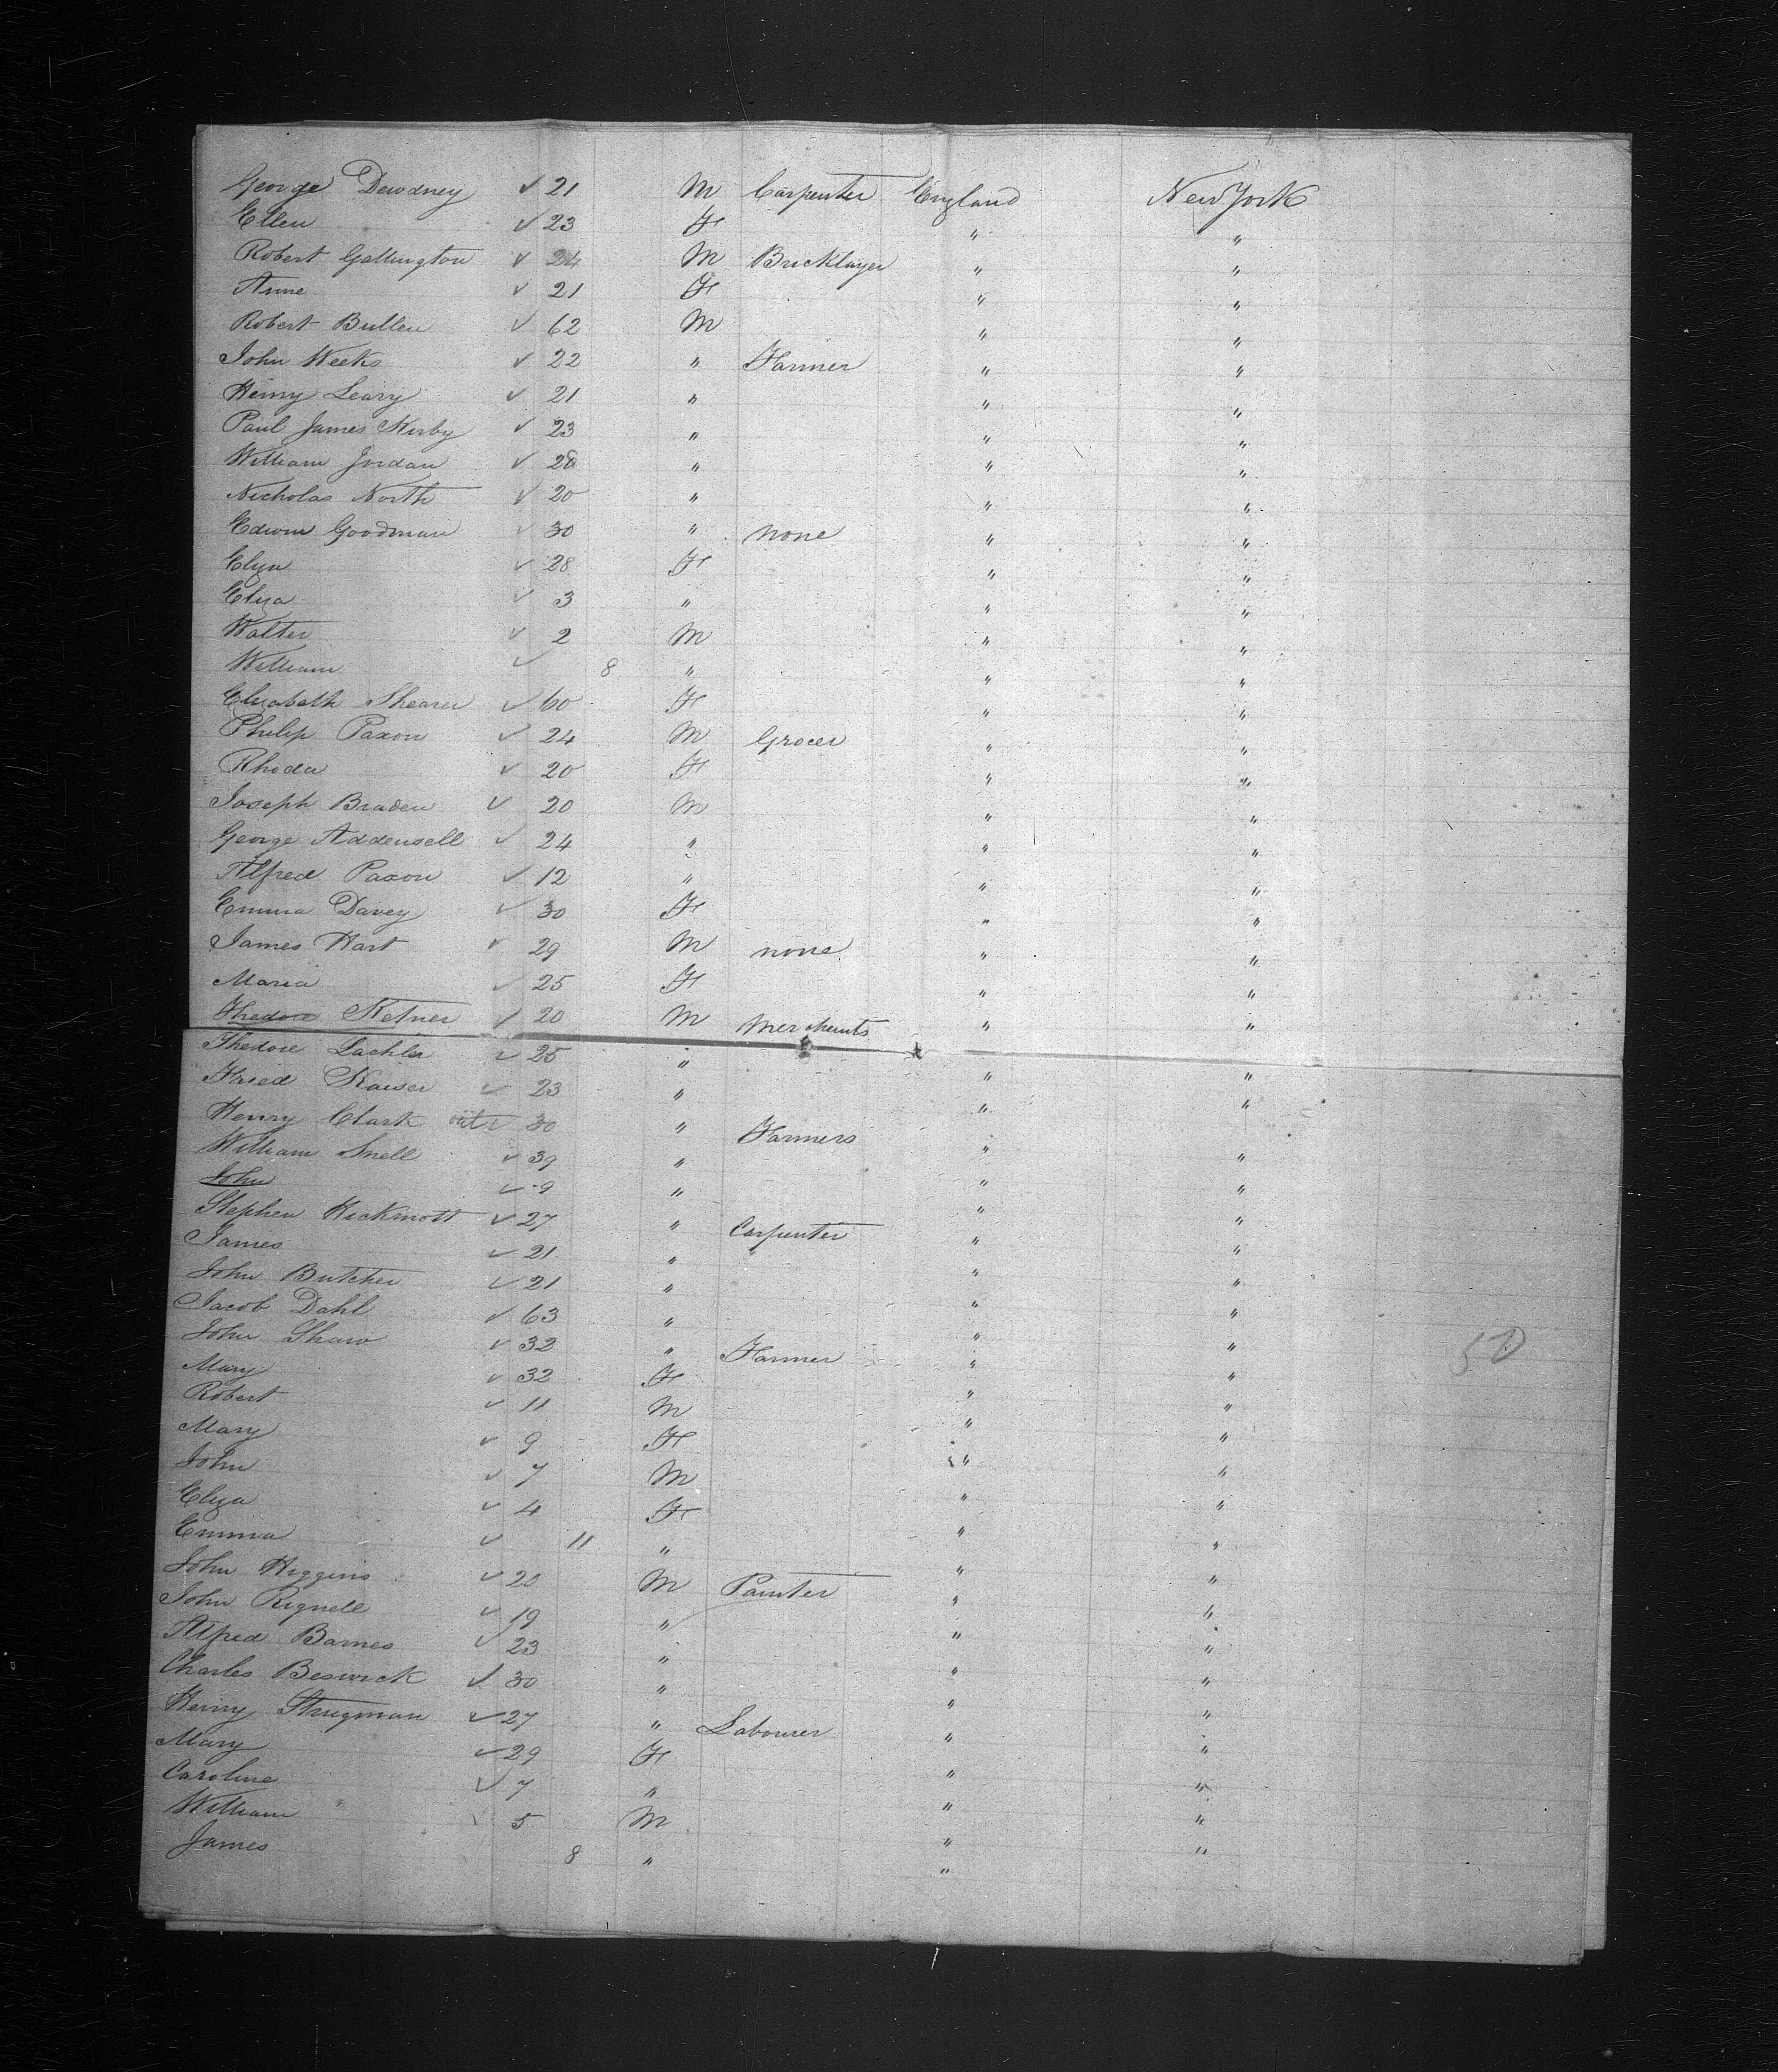 George Dewdney ✓ 21 M Carpenter England New York
Ellen ✓ 23 F " "
Robert Gallington ✓ 24 M Bricklayer " "
Anne ✓ 21 F " "
Robert Bullen ✓ 62 M " "
John Weeks ✓ 22 " Farmer " "
Henry Leary ✓ 21 " " "
Paul James Kirby ✓ 23 " " "
William Jordan ✓ 28 " " "
Nicholas North ✓ 20 " " "
Edwin Goodman ✓ 30 " none " "
Eliza ✓ 28 F " "
Eliza ✓ 3 " " "
Walter ✓ 2 M " "
William ✓ 8 " " "
Elizabeth Shearer ✓ 60 F " "
Philip Paxon ✓ 24 M Grocer " "
Rhoda ✓ 20 F " "
Joseph Braden ✓ 20 M " "
George Addensell ✓ 24 " " "
Alfred Paxon ✓ 12 " " "
Emma Davey ✓ 30 F " "
James Hart ✓ 29 M none " "
Maria ✓ 25 F " "
Thedore Ketner ✓ 20 M Merchants " "
Thedore Lachler ✓ 25 " " "
Fried Kaiser ✓ 23 " " "
Henry Clark ✓ 30 " Farmers " "
William Snell ✓ 39 " " "
John ✓ 9 " " "
Stephen Hickmott ✓ 27 " Carpenter " "
James ✓ 21 " " "
John Butcher ✓ 21 " " "
Jacob Dahl ✓ 63 " " "
John Shaw ✓ 32 " Farmer " " 50
Mary ✓ 32 F " "
Robert ✓ 11 M " "
Mary ✓ 9 F " "
John ✓ 7 M " "
Eliza ✓ 4 F " "
Emma ✓ 11 " " "
John Higgins ✓ 20 M Painter " "
John Rignell ✓ 19 " " "
Alfred Barnes ✓ 23 " " "
Charles Beswick ✓ 30 " " "
Henry Strugman ✓ 27 " Labourer " "
Mary ✓ 29 F " "
Caroline ✓ 7 " " "
William ✓ 5 M " "
James 8 " " "